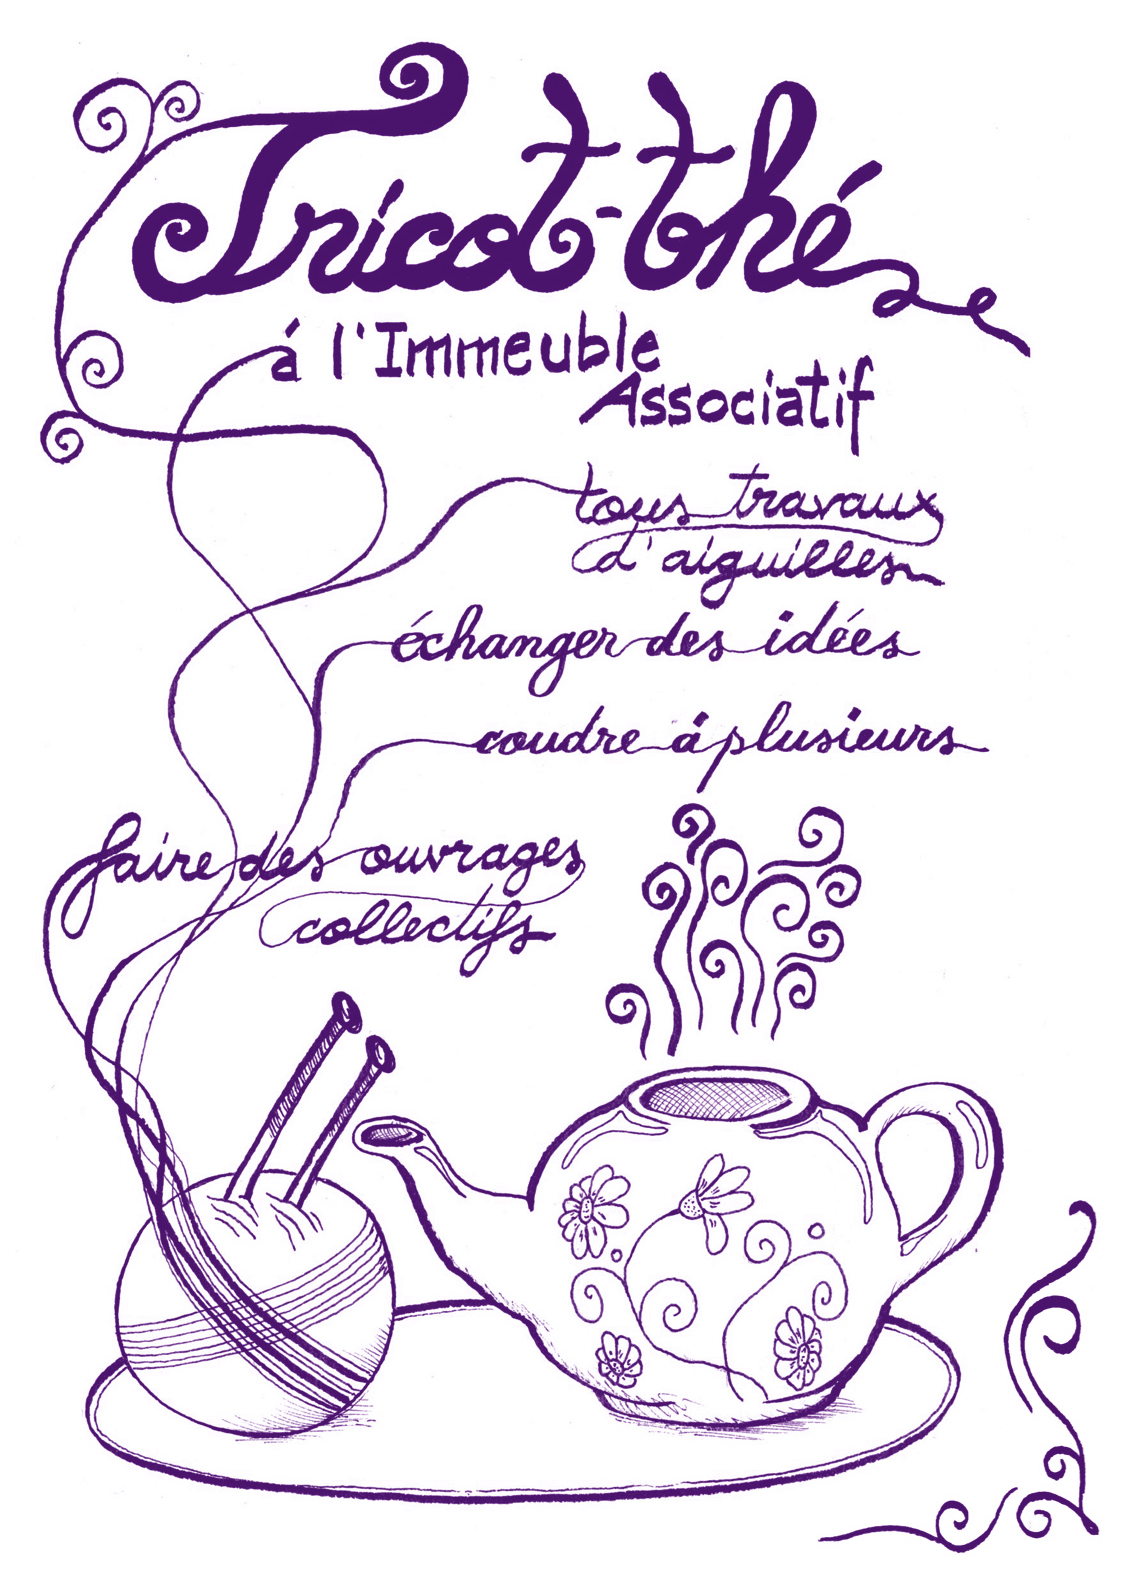 Tricot-thé
á l'Immeuble
Associatif
tous travaux
d'aiguilles
échanger des idées
coudre á plusieurs
faire des ouvrages
collectifs